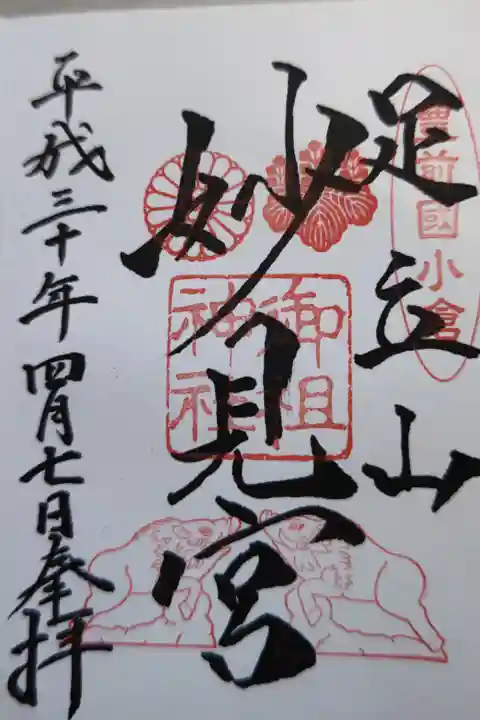 豊前國小倉
足立山
妙見宮
御祖
神社
平成三十年四月七日奉拝